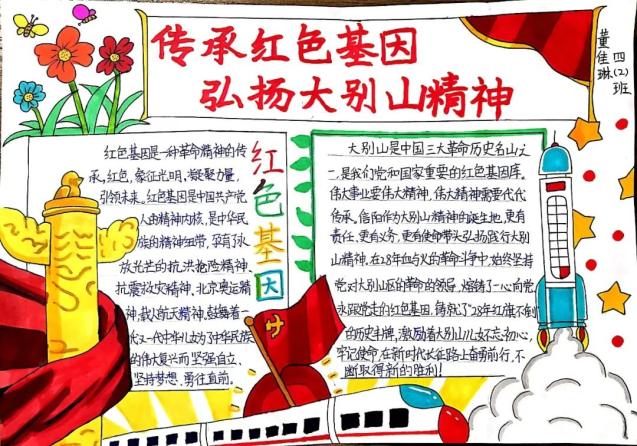 传承红色基因
弘扬大别山精神
四(2)班
董佳琳
红色基因是一种革命精神的传
承,红色,象征光明,凝聚力量,
引领未来。红色基因是中国共产党
人的精神内核,是中华民
族的精神纽带,孕育了永
放光芒的抗洪抢险精神、
抗震救灾精神、北京奥运精
神、载人航天精神,鼓舞着一
代又一代中华儿女为了中华民族
的伟大复兴而坚强自立、
坚持梦想、勇往直前。
红色基因
大别山是中国三大革命历史名山之
一,是我们党和国家重要的红色基因库。
伟大事业要伟大精神,伟大精神需要代代
传承,信阳作为大别山精神的诞生地,更有
责任、更有义务、更有使命带头弘扬践行大别
山精神。在28年血与火的革命斗争中,始终坚持
党对大别山区的革命的领导,熔铸了一心向党
永跟党走的红色基因,铸就了“28年红旗不倒”
的历史丰碑,激励着大别山儿女不忘初心,
牢记使命,在新时代长征路上奋勇前行,不
断取得新的胜利!